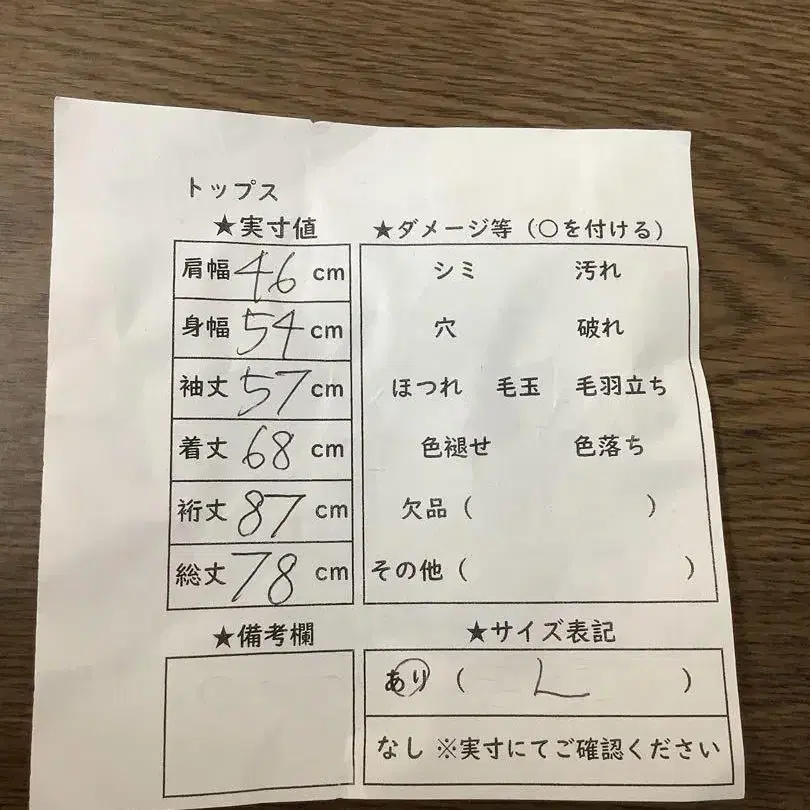 トップス
★実寸値
肩幅 46 cm
身幅 54 cm
袖丈 57 cm
着丈 68 cm
裄丈 87 cm
総丈 78 cm
★ダメージ等（○を付ける）
シミ 汚れ
穴 破れ
ほつれ 毛玉 毛羽立ち
色褪せ 色落ち
欠品（ ）
その他（ ）
★備考欄
★サイズ表記
あり（ L ）
なし ※実寸にてご確認ください